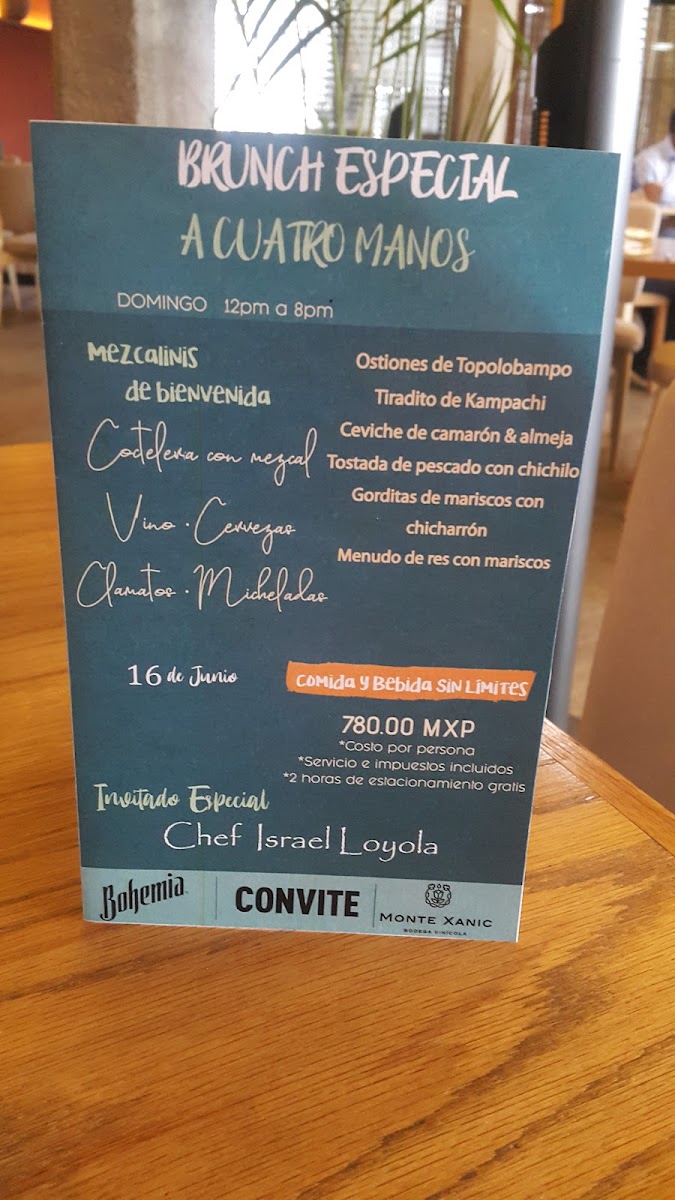 BRUNCH ESPECIAL
A CUATRO MANOS
DOMINGO 12pm a 8pm
Mezcalinis
de bienvenida
Coctelera con mezcal
Vino · Cervezas
Clamatos · Micheladas
Ostiones de Topolobampo
Tiradito de Kampachi
Ceviche de camarón & almeja
Tostada de pescado con chichilo
Gorditas de mariscos con
chicharrón
Menudo de res con mariscos
16 de Junio
Comida y Bebida sin Límites
780.00 MXP
*Costo por persona
*Servicio e impuestos incluidos
*2 horas de estacionamiento gratis
Invitado Especial
Chef Israel Loyola
Bohemia
CONVITE
MONTE XANIC
BODEGA VINÍCOLA